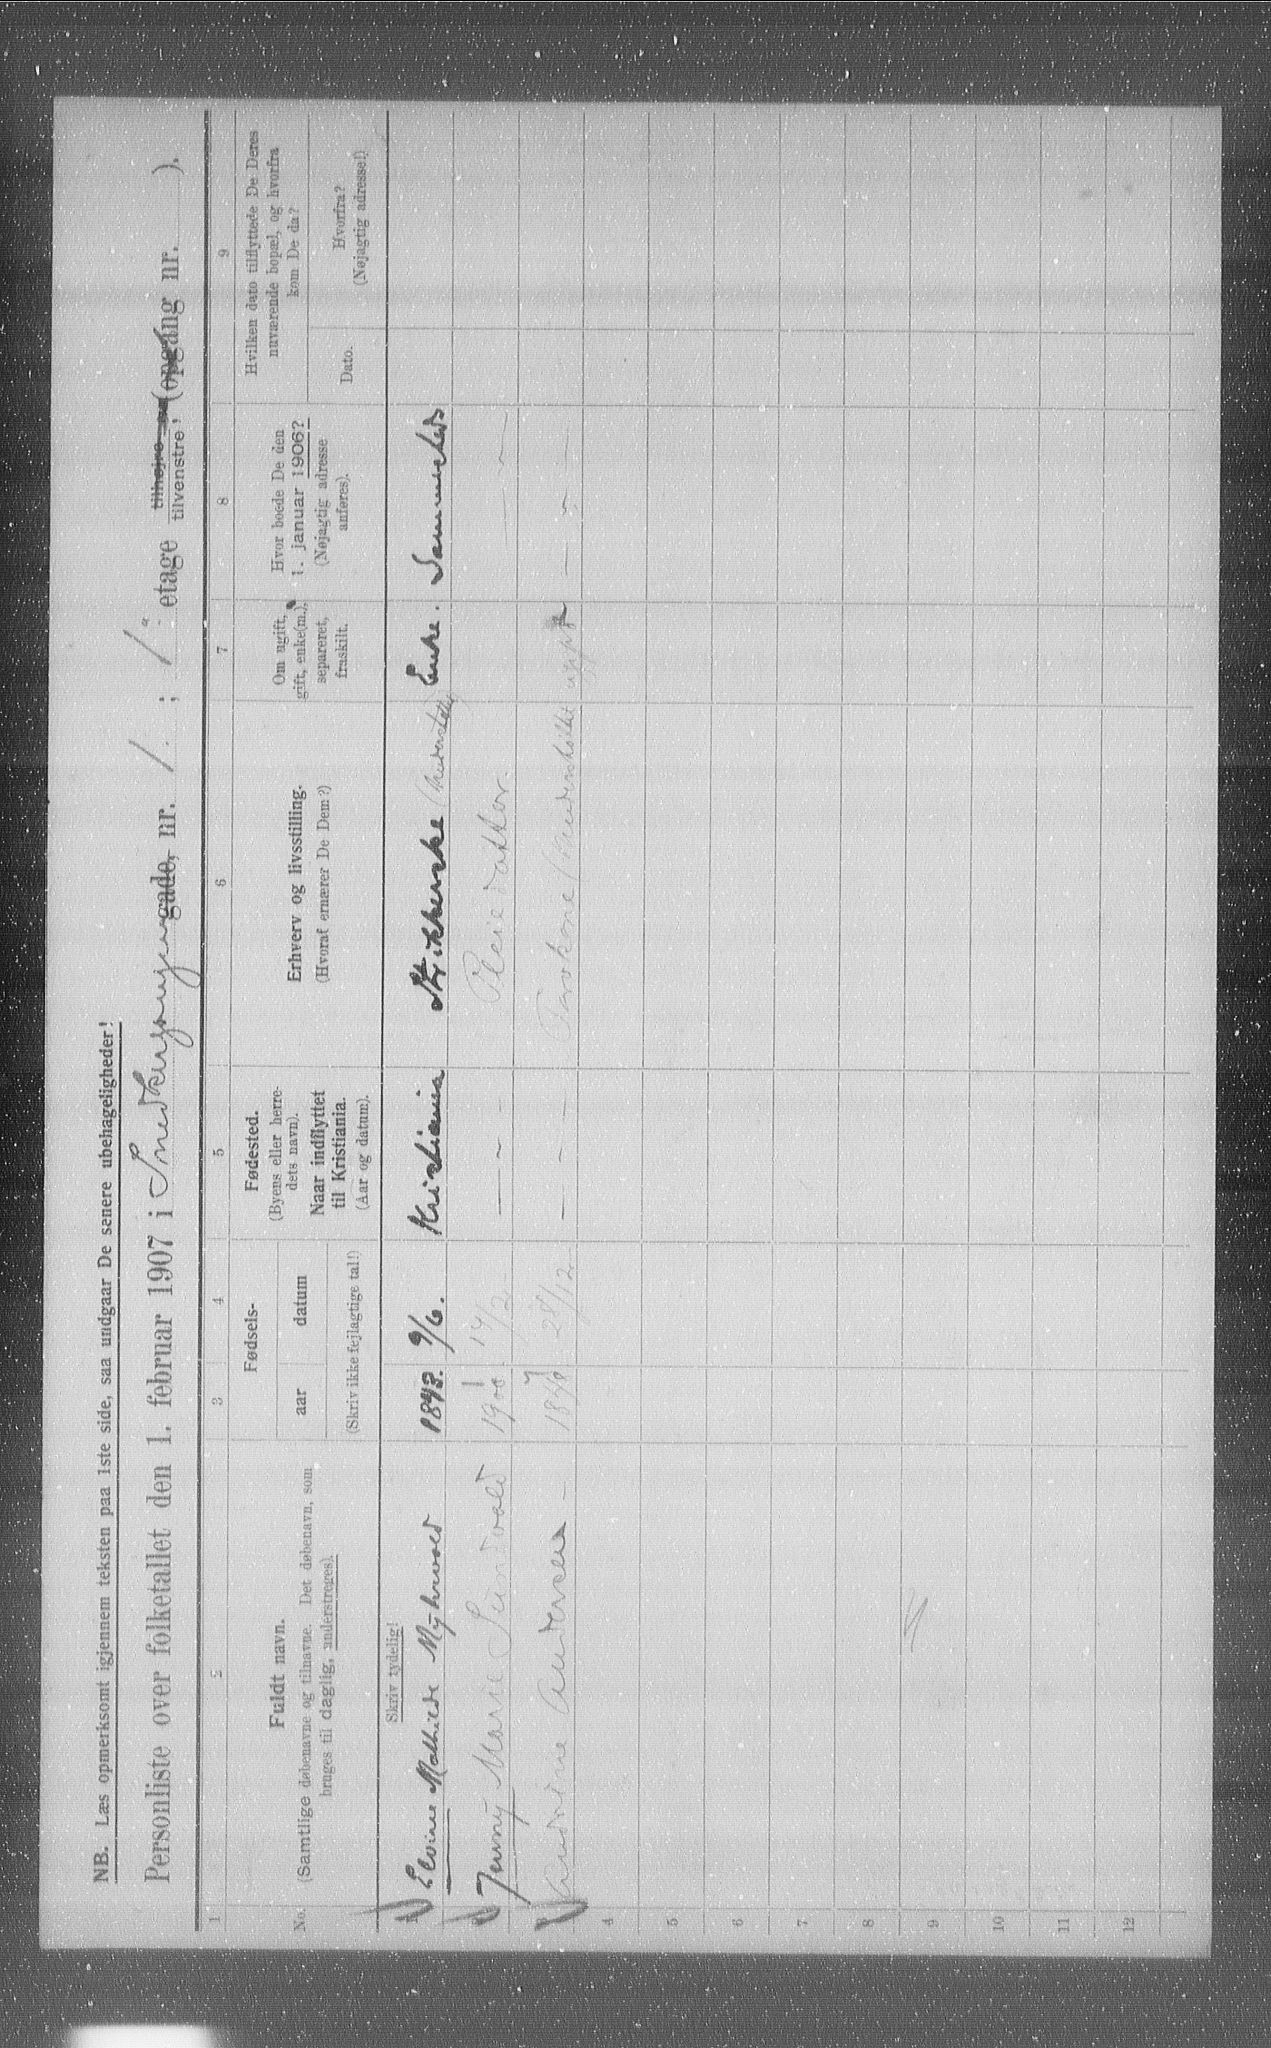 NB. Læs opmerksomt igjennem teksten paa 1ste side, saa undgaar De senere ubehageligheder!
Personliste over folketallet den 1. februar 1907 i Smedkergangen gade, nr. 1. ; 1. etage tilhøjre tilvenstre, (opgang nr. ).
1 2 3 4 5 6 7 8 9
No.
Fuldt navn.
(Samtlige døbenavne og tilnavne. Det døbenavn, som
bruges til daglig, understreges).
Fødsels-
aar datum
(Skriv ikke fejlagtige tal!)
Fødested.
(Byens eller herre-
dets navn).
Naar indflyttet
til Kristiania.
(Aar og datum).
Erhverv og livsstilling.
(Hvoraf ernærer De Dem?)
Om ugift,
gift, enke(m.),
separeret,
fraskilt.
Hvor boede De den
1. januar 1906?
(Nøjagtig adresse
anføres).
Hvilken dato tilflyttede De Deres
nuværende bopæl, og hvorfra
kom De da?
Dato.
Hvorfra?
(Nøjagtig adresse!)
Skriv tydelig!
Elvine Mathilde Myhrvold 1843. 9/6. Kristiania Strikkerske Enke. Sammesteds
Jenny Marie Sundvold 1900 14/2 — " — Pleiedatter — " —
3 Andrine Andersen - 1841 28/12 — " — ugift — " —
4
5
6
7
8
9
10
11
12